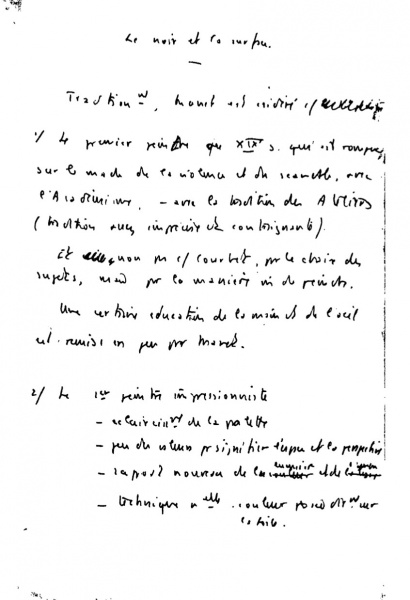 Le noir et la surface.
Traditionnt, Manet est considéré c/
1/ Le premier peintre du XIXe s. qui ait rompu,
sur le mode de la violence et du scandale, avec
l'Académisme, – avec la tradition des Ateliers
(tradition
Et non pas c/ Courbet, par le choix des
sujets, mais par la manière m de peindre.
Une certaine éducation de la main et de l'œil
est remise en par Manet.
2/ Le 1er peintre impressionniste
– éclaircisst de la palette
– jeu des valeurs pr signifier l'espace et la perspective
– rapport nouveau de la et de la
– technique nelle : couleur posée dirt sur
la toile.